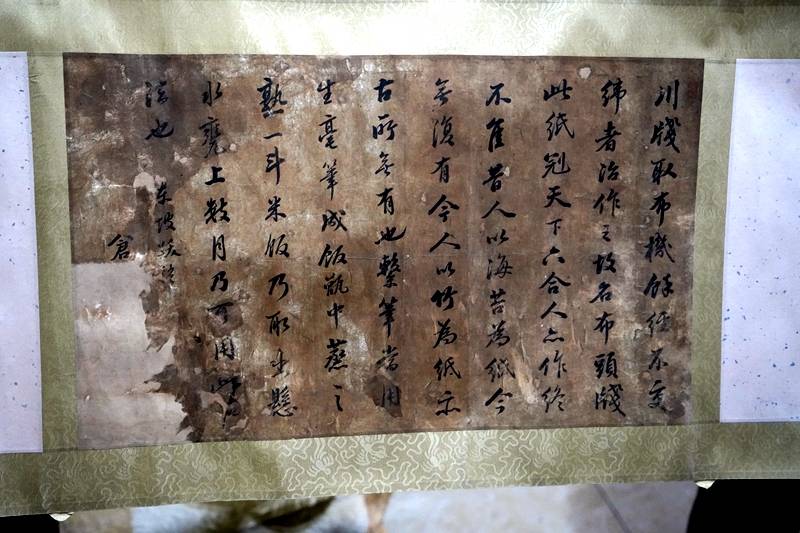 川牋取布機餘經不受
緯者治作之故名布頭牋
此紙冠天下六合人亦作終
不佳昔人以海苔為紙今
無復有今人以竹為紙亦
古所無有也繫筆當用
生毫筆成飯甑中蒸之
熟一斗米飯乃取出懸
水甕上數月乃可用此古
法也
東坡
倉